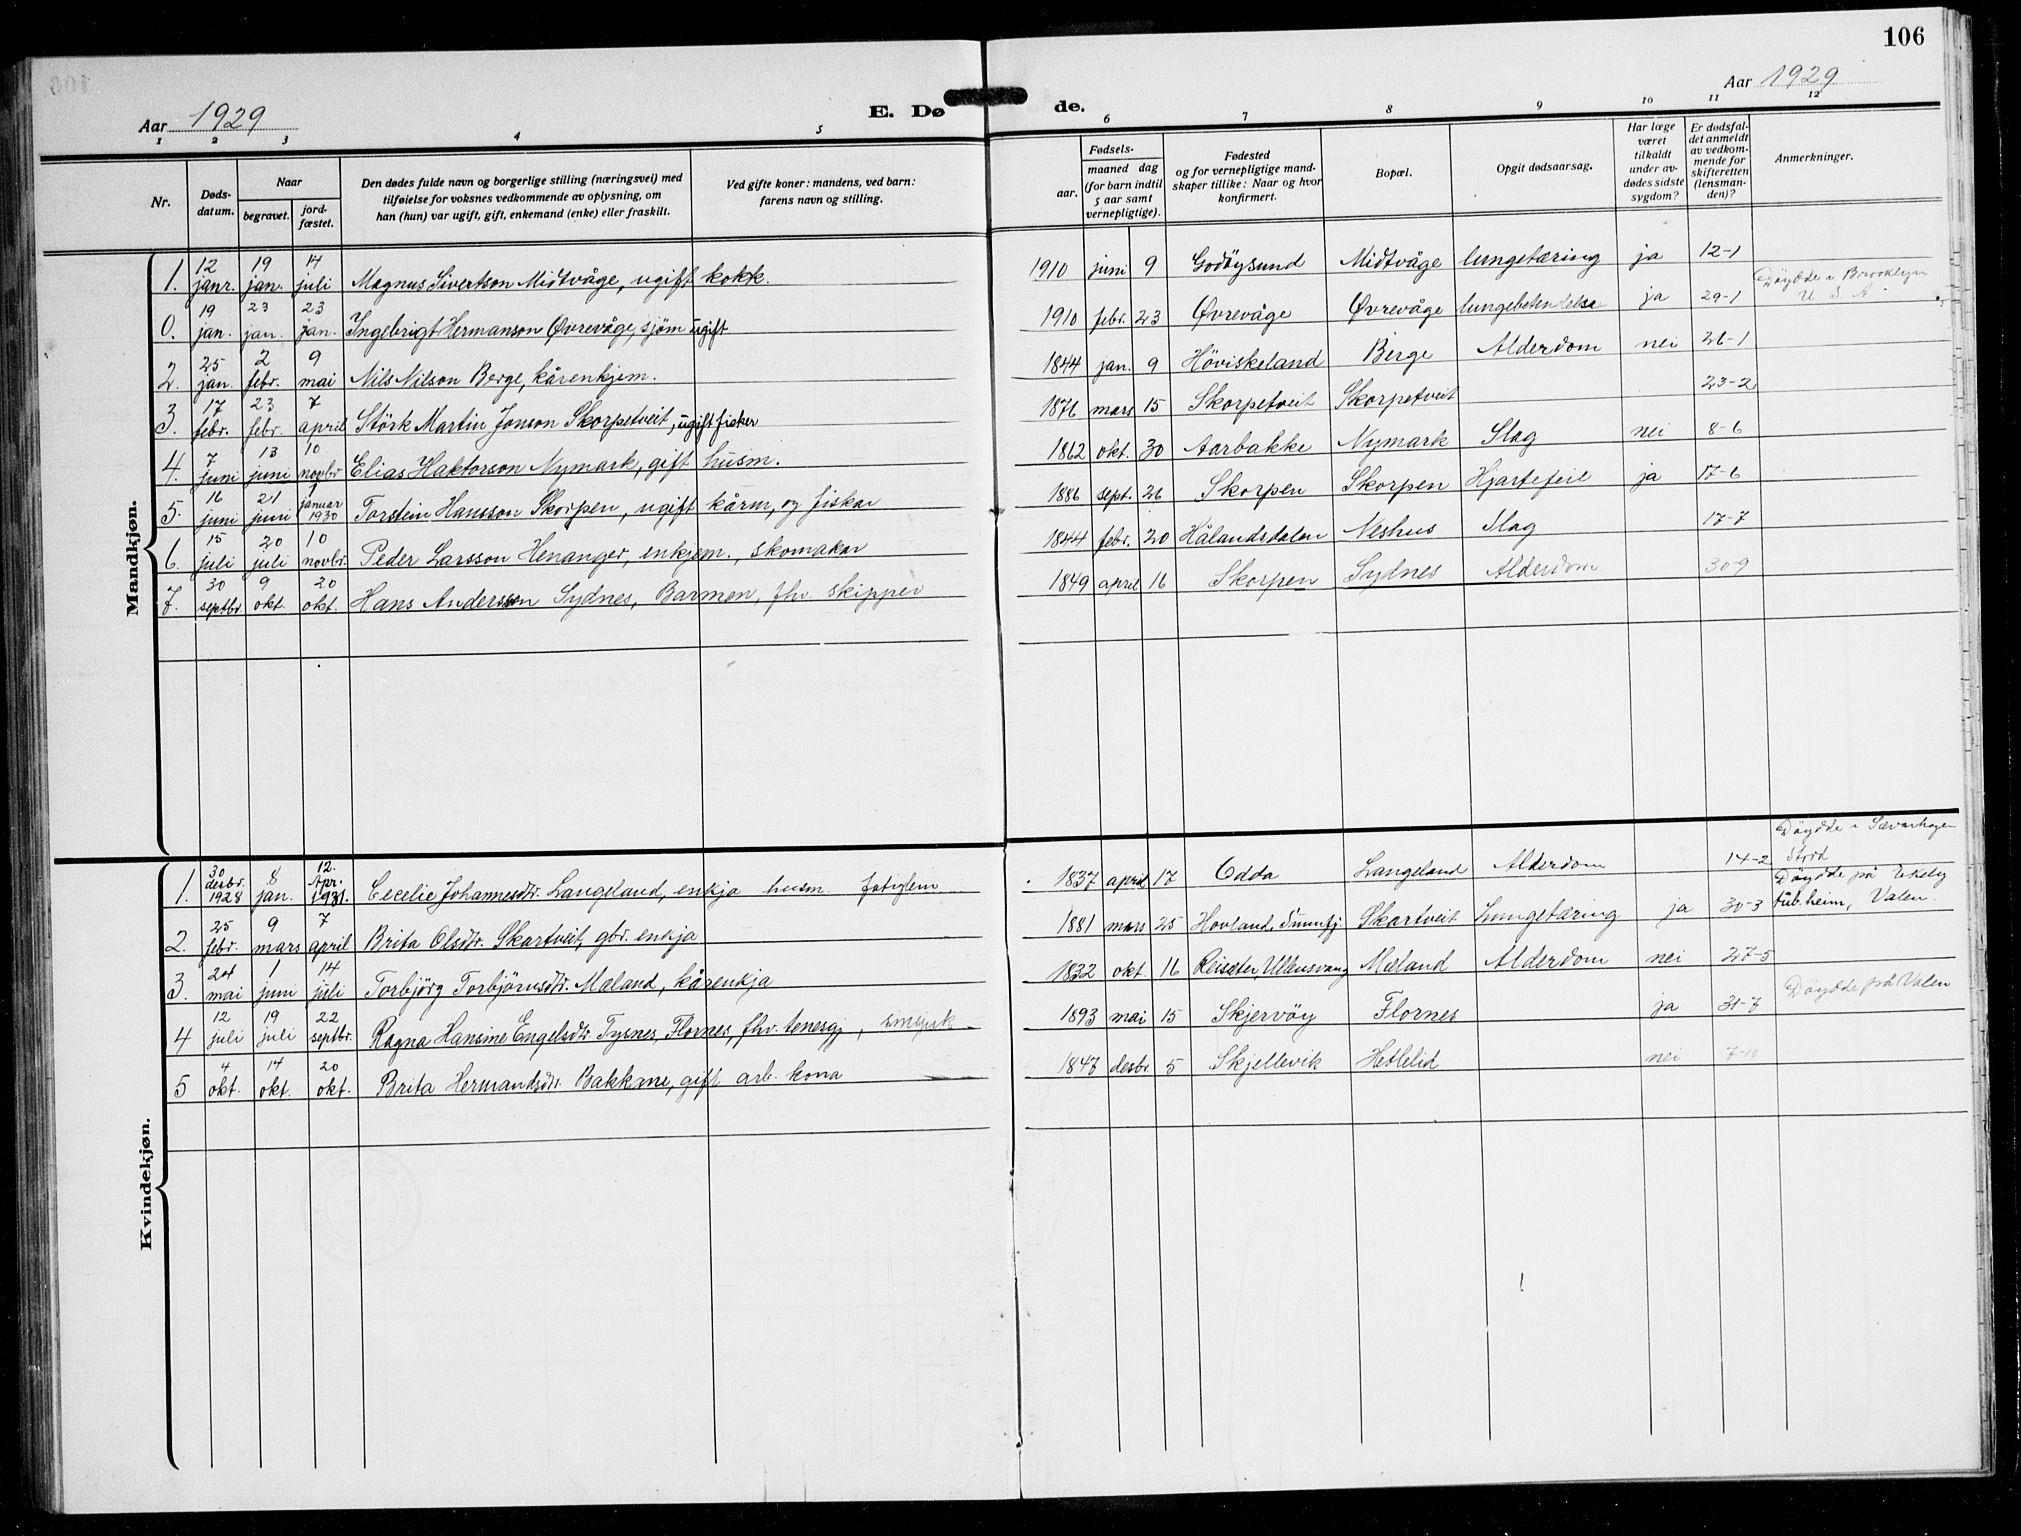 106
Aar 1929
E. Dø
de.
Aar 1929
1 2 3 4 5 6 7 8 9 10 11 12
Nr.
Døds-
datum.
Naar
begravet.
jord-
fæstet.
Den dødes fulde navn og borgerlige stilling (næringsvei) med
tilføielse for voksnes vedkommende av oplysning, om
han (hun) var ugift, gift, enkemand (enke) eller fraskilt.
Ved gifte koner: mandens, ved barn:
farens navn og stilling.
Fødsels-
aar.
maaned dag
(for barn indtil
5 aar samt
vernepligtige).
Fødested
og for vernepligtige mand-
skaper tillike: Naar og hvor
konfirmert.
Bopæl.
Opgit dødsaarsag.
Har læge
været
tilkaldt
under av-
dødes sidste
sygdom?
Er dødsfal-
det anmeldt
av vedkom-
mende for
skifteretten
(lensman-
den)?
Anmerkninger.
Mandkjøn.
1. 12 janr. 19 jan. 14 juli Magnus Sivertson Midtvåge, ugift kokk. 1910 juni 9 Godöysund Midtvåge lungetæring ja 12-1 Döydde i Brooklyn U S A.
0. 19 jan. 23 jan. 23 jan. Ingebrigt Hermanson Øvrevåge, sjöm ugift 1910 febr. 23 Øvrevåge Øvrevåge lungebetendelse ja 29-1
2. 25 jan. 2 febr. 9 mai Nils Nilson Berge, kårenkjem. 1844 jan. 9 Höviskeland Berge Alderdom nei 26-1
3. 17 febr. 23 febr. 7 april Störk Martin Jonson Skorpetveit, ugift fisker 1876 mars 15 Skorpetveit Skorpetveit 23-2
4. 7 juni 13 juni 10 novbr Elias Haktorson Nymark, gift husm. 1862 okt. 30 Aarbakke Nymark Slag nei 8-6
5. 16 juni 21 juni 1 januar 1930 Torstein Hansson Skorpen, ugift kårm, og fiskar 1886 sept. 26 Skorpen Skorpen Hjartefeil ja 17-6
6. 15 juli 20 juli 10 novbr. Peder Larsson Henanger, enkjem. skomakar 1844 febr. 20 Hålandsdalen Neshus Slag 17-7
7. 30 septbr 9 okt. 20 okt. Hans Anderssen Sydnes, Barmen, fhv. skipper 1849 april 16 Skorpen Sydnes Alderdom 30-9
Kvindekjøn.
1. 30 desbr. 1928 8 jan. 12. Apr. 1931. Cecelie Johannesdtr. Langeland, enkja husm. fatiglem 1837 april 17 Odda Langeland Alderdom 14-2 Döydde i Sævarhagen Stord
2. 25 febr. 9 mars 7 april Brita Olsdtr. Skartveit, gbr. enkja 1881 mars 25 Hovland, Skartveit Lungetæring ja 30-3 Döydde på Ekely tub.heim, Valen.
3. 24 mai 1 juni 14 juli Torbjörg Torbjörnsdtr. Mæland, kårenkja 1832 okt. 16 Reisæter Ullensvang Mæland Alderdom nei 27-5
4 12 juli 19 juli 22 septbr. Ragna Hansine Engelsdtr Tysnes, Flornes, fhv. tenesgj, sinsjuk 1893 mai 15 Skjervöy Flornes ja 31-7 Döydde på Valen
5 4 okt. 14 okt. 20 okt. Brita Hermandsdtr. Bakkane, gift arb. kona 1847 desbr 5 Skjellevik Hetlelid nei 7-10